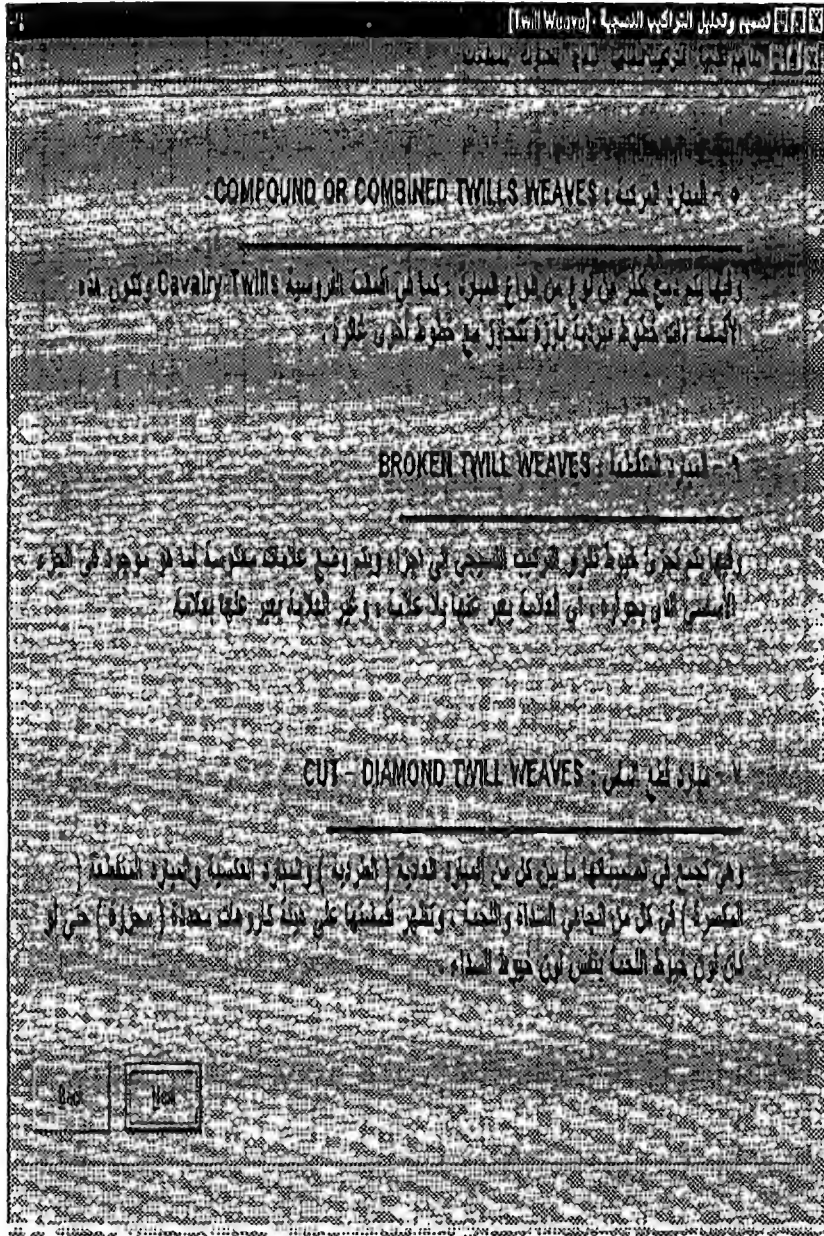 تصميم وتحليل التراكيب النسجية - [Twill Weave]
٥ - المبارد المركبة : COMPOUND OR COMBINED TWILLS WEAVES
وفيها يتم دمج أكثر من نوع من أنواع المبارد ، كما في أقمشة الفروسية Cavalry-Twills وتكون هذه
الأقمشة ذات خطوط مبردية بارزة تتجاور مع خطوط أخرى غائرة .
٦ - المبارد المتقطعة : BROKEN TWILL WEAVES
وفيها يتم تجزئ خيوط تكرار التركيب النسيجي إلى أجزاء ويتم وضع علامات معكوسة لما هو موجود في الجزء
الأساسي الذي بجواره ، أي العلامة يعبر عنها بلا علامة ، وغير العلامة يعبر عنها بعلامة
٧ - مبارد قطع الماس : CUT - DIAMOND TWILL WEAVES
وهي تجمع في تصميماتها ما بين كل من المبارد العادية ( الطردية ) والمبارد العكسية والمبارد المتقطعة (
المكسرة ) في كل من اتجاهي السداة واللحمة ، وتظهر أقمشتها على هيئة كاروهات محددة ( محززة ) حتى لو
كان لون خيوط اللحمة بنفس لون خيوط السداء .
Back
Next